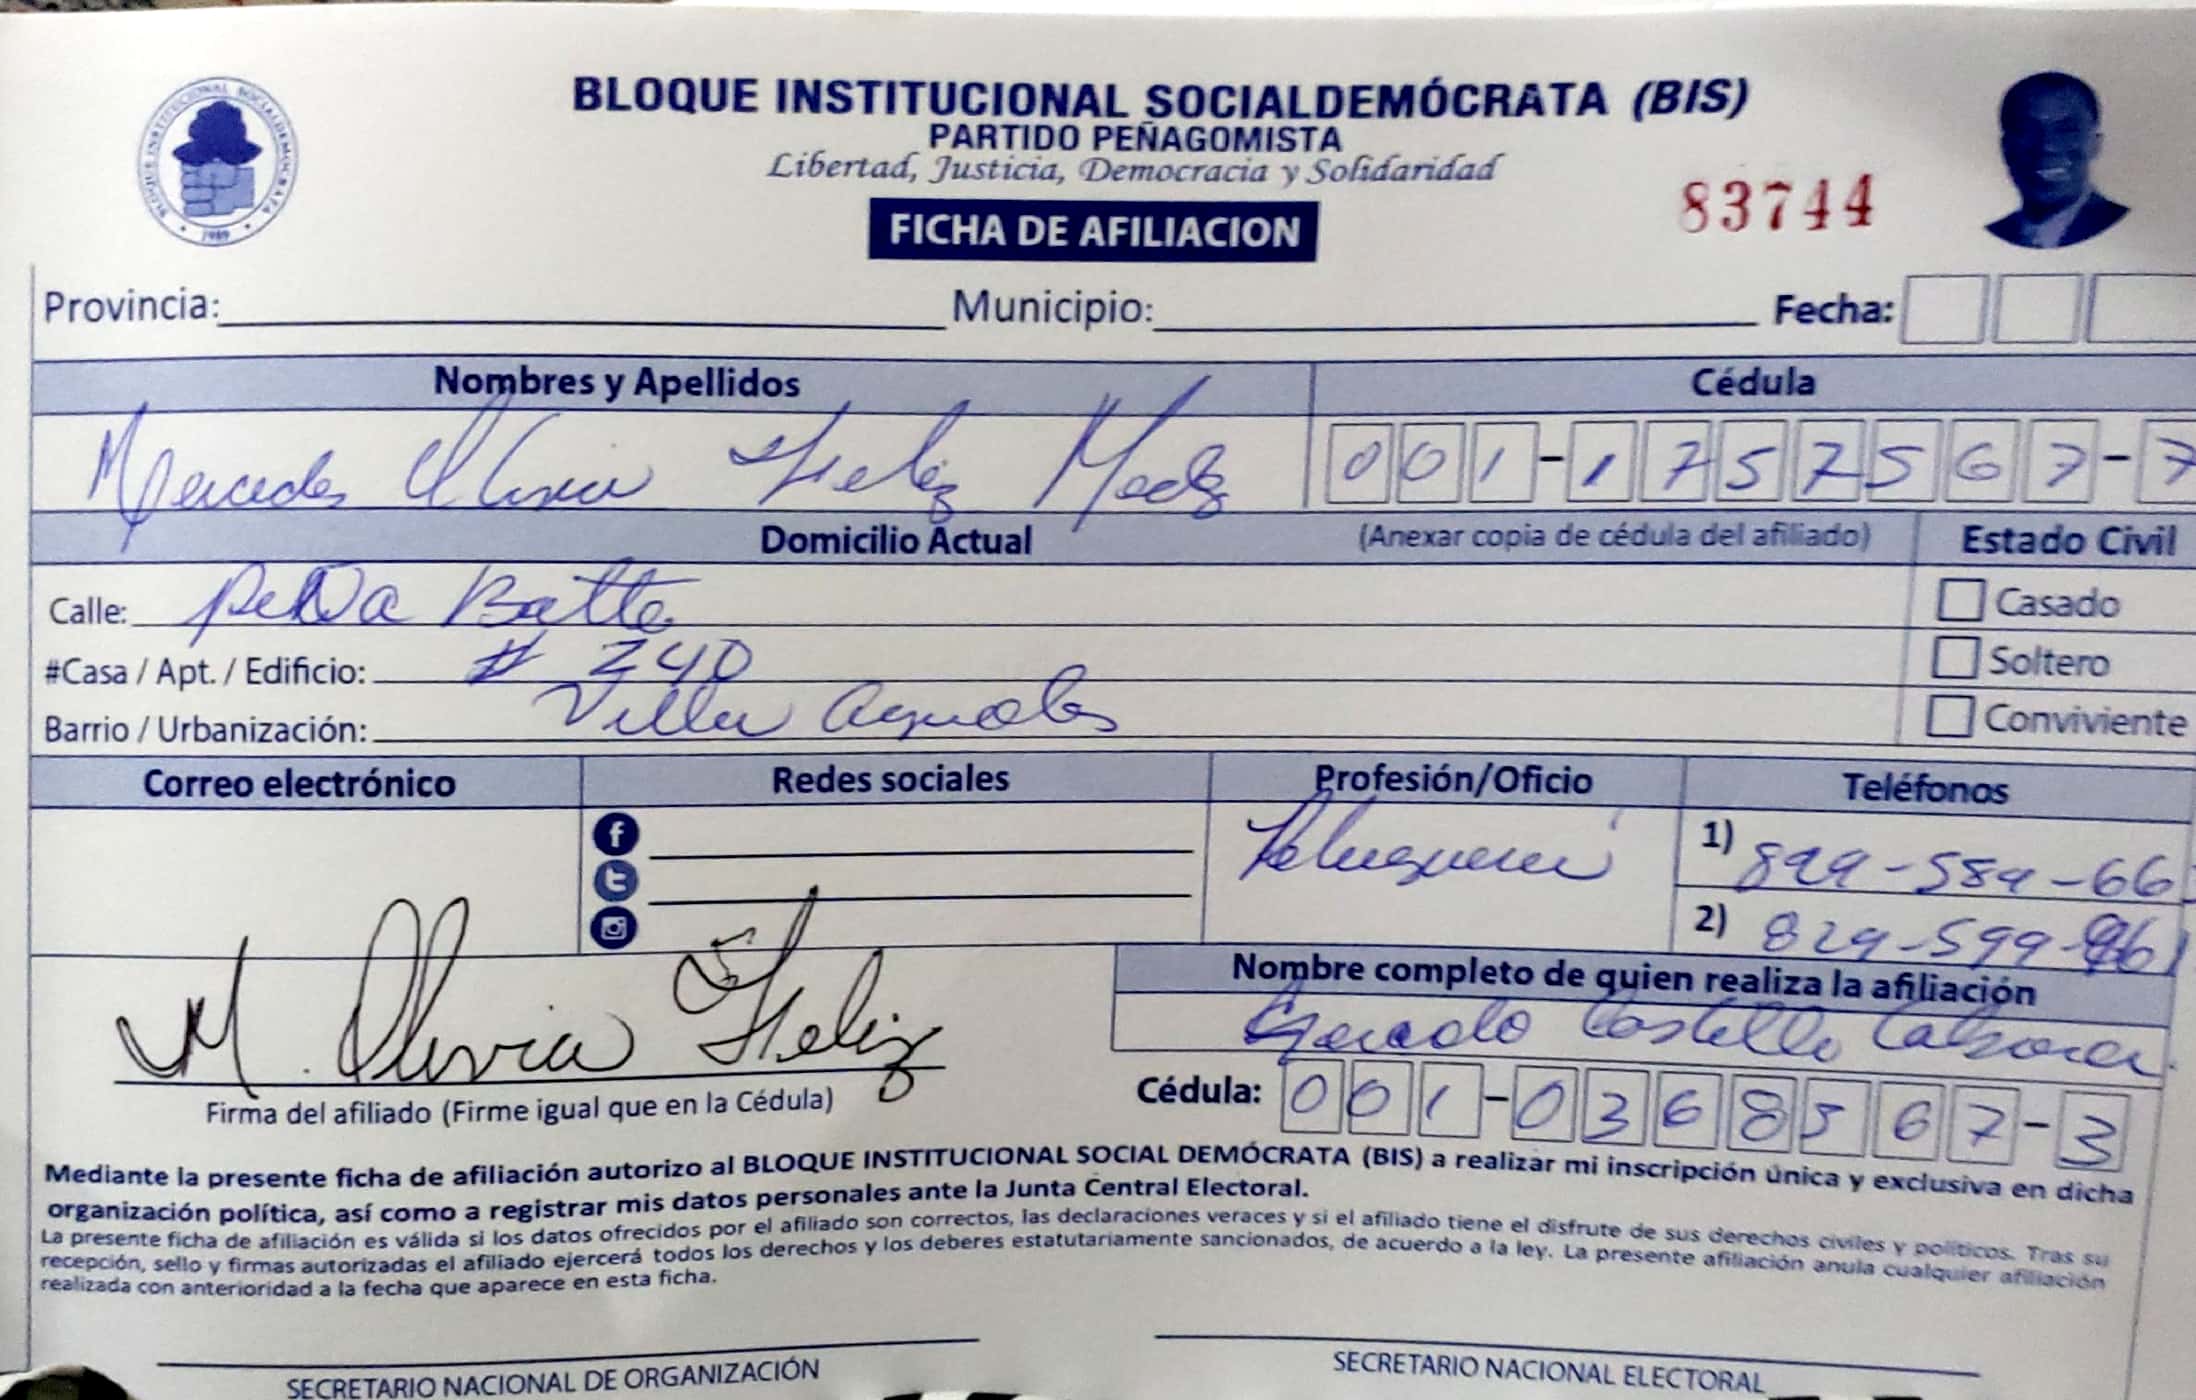 BLOQUE INSTITUCIONAL SOCIALDEMÓCRATA (BIS)
PARTIDO PEÑAGOMISTA
Libertad, Justicia, Democracia y Solidaridad
83744
FICHA DE AFILIACION
BLOQUE INSTITUCIONAL SOCIALDEMOCRATA
Provincia: Municipio: Fecha:
Nombres y Apellidos Cédula
Mercedes Olivia Feliz 001-1757567-7
Domicilio Actual (Anexar copia de cédula del afiliado) Estado Civil
Calle: Peña Batlle Casado
#Casa / Apt. / Edificio: # 240 Soltero
Barrio / Urbanización: Villa Conviviente
Correo electrónico Redes sociales Profesión/Oficio Teléfonos
1) 829-584-66
2) 829-599-
Nombre completo de quien realiza la afiliación
Castillo
M. Olivia Feliz
Firma del afiliado (Firme igual que en la Cédula)
Cédula: 001-0368567-3
Mediante la presente ficha de afiliación autorizo al BLOQUE INSTITUCIONAL SOCIAL DEMÓCRATA (BIS) a realizar mi inscripción única y exclusiva en dicha
organización política, así como a registrar mis datos personales ante la Junta Central Electoral.
La presente ficha de afiliación es válida si los datos ofrecidos por el afiliado son correctos, las declaraciones veraces y si el afiliado tiene el disfrute de sus derechos civiles y políticos. Tras su
recepción, sello y firmas autorizadas el afiliado ejercerá todos los derechos y los deberes estatutariamente sancionados, de acuerdo a la ley. La presente afiliación anula cualquier afiliación
realizada con anterioridad a la fecha que aparece en esta ficha.
SECRETARIO NACIONAL DE ORGANIZACIÓN
SECRETARIO NACIONAL ELECTORAL